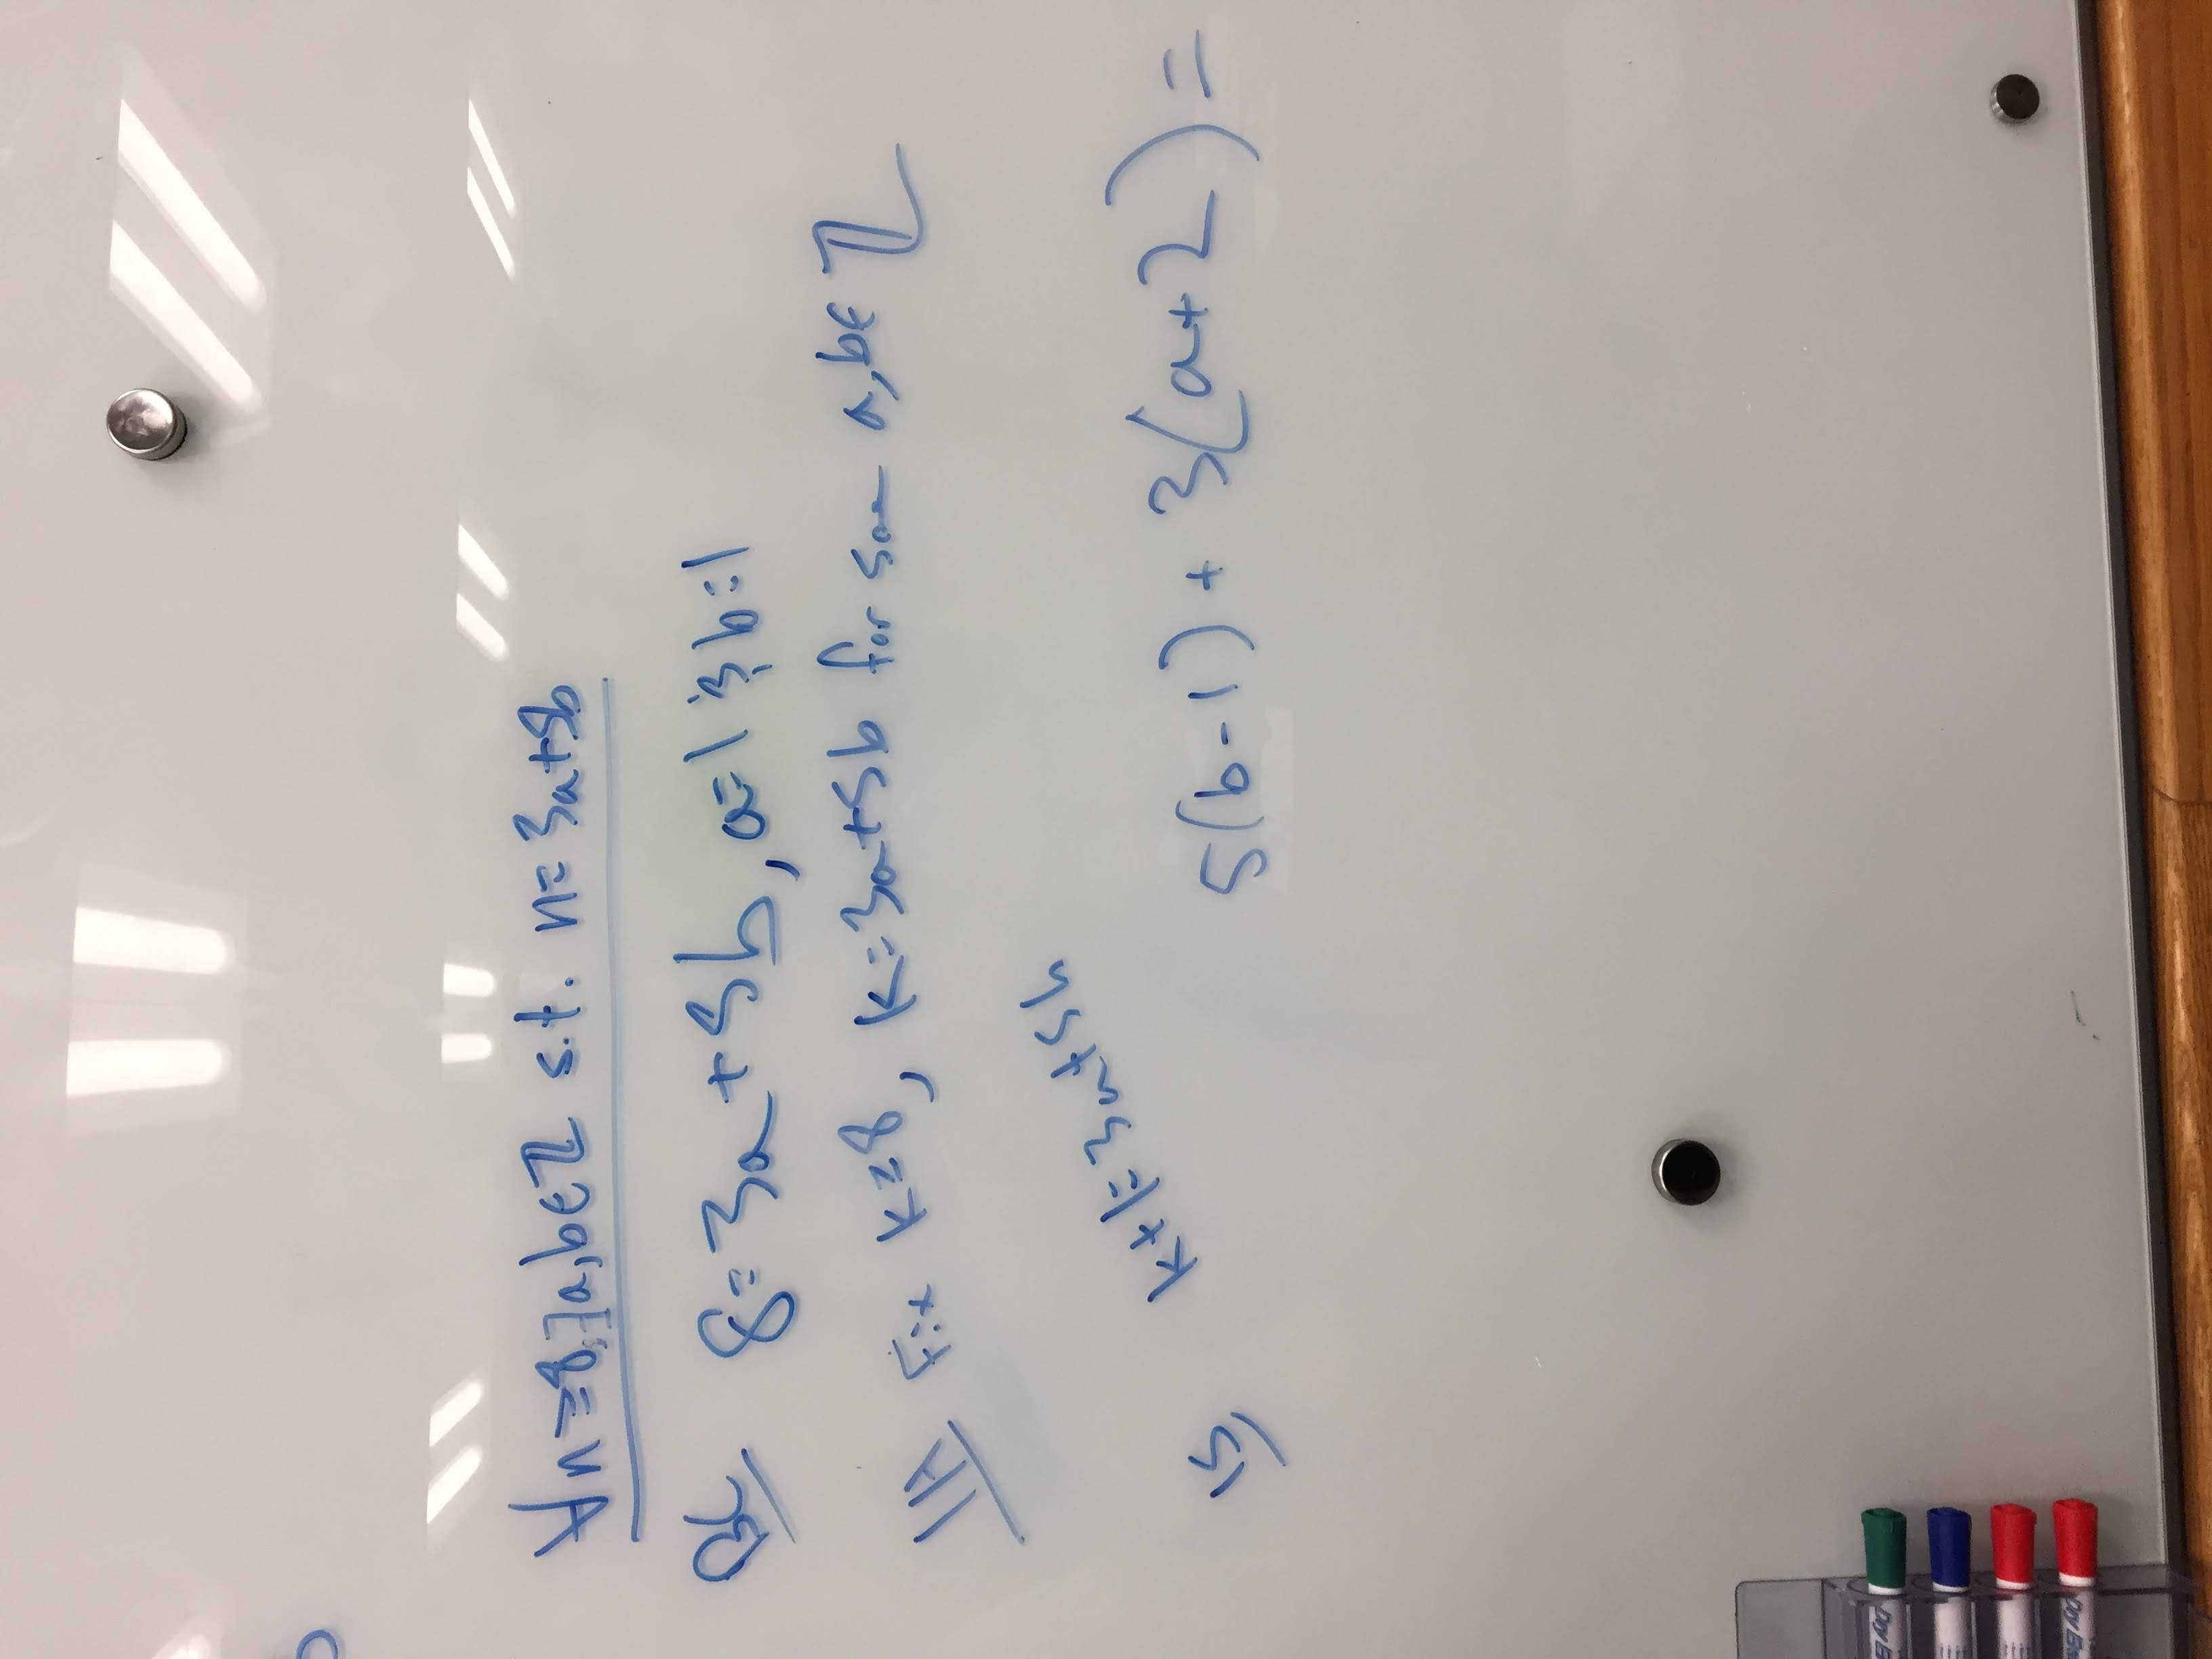 ∀n≥8, ∃a,b∈ℤ s.t. n=3a+5b
BC 8=3a+5b, a=1 & b=1
IH Fix k≥8, k=3a+5b for some a,b∈ℤ
k+1=3a+5b
IS 5(b-1)+3(a+2)=
Dry
Dry